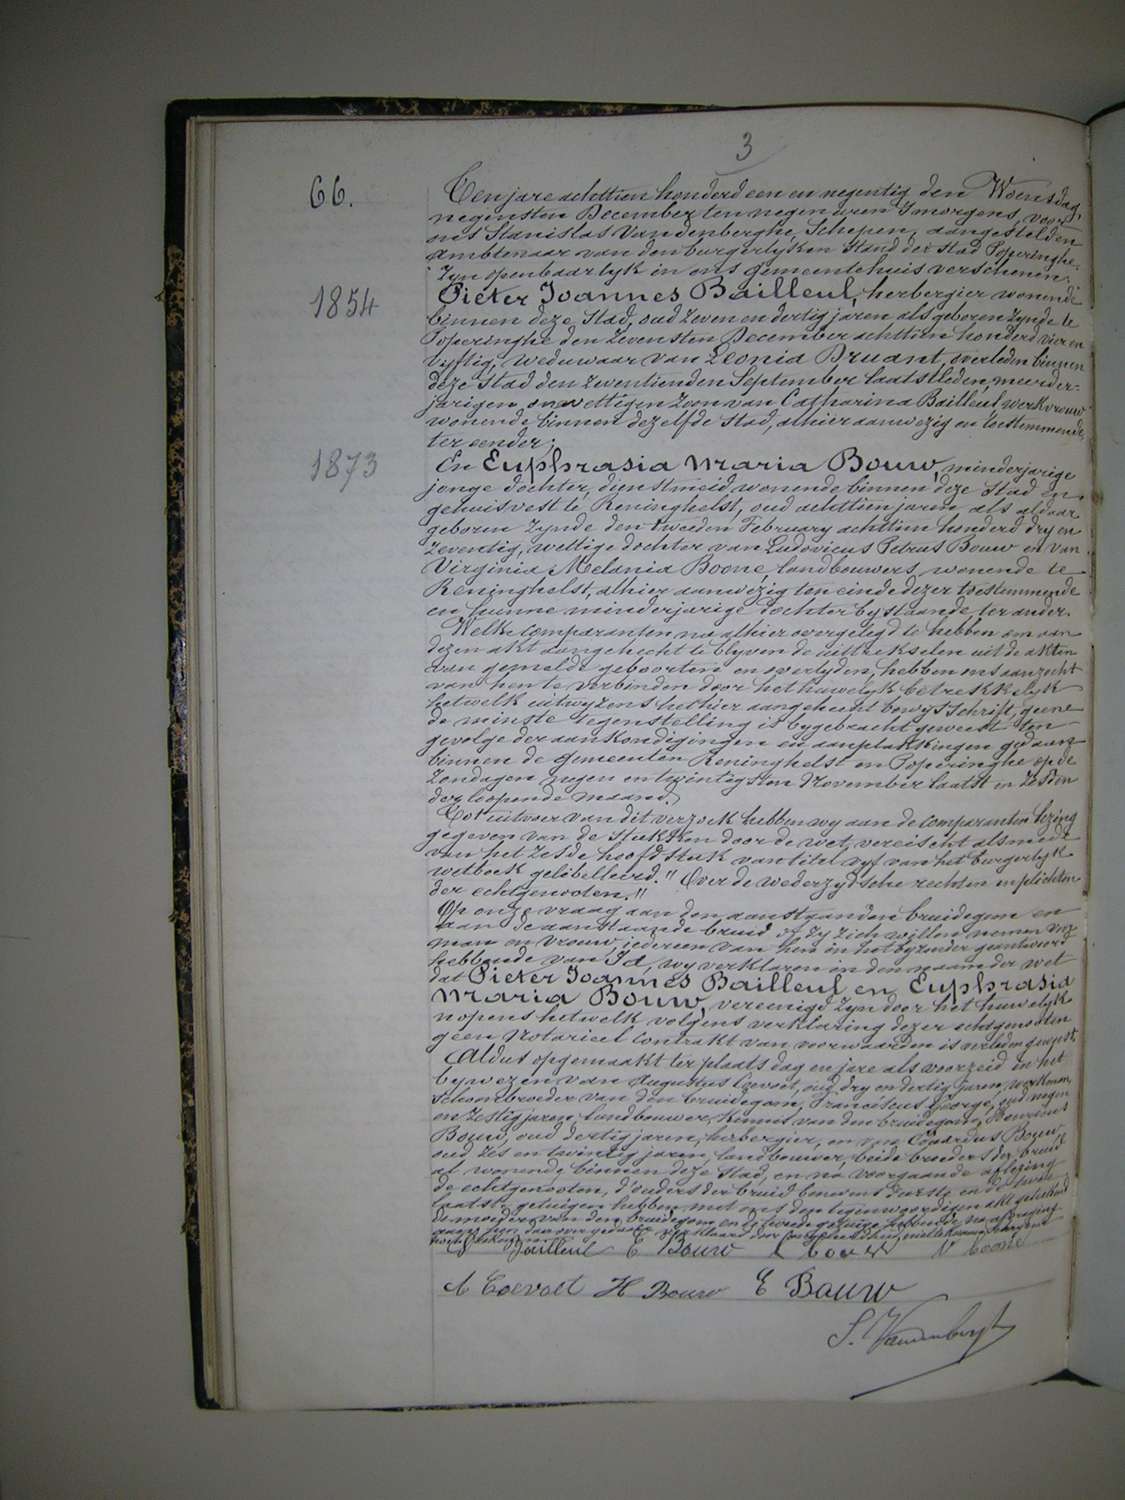 3
66.
Ten jare achttien honderd een en negentig den Woensdag,
negensten December ten negen uren 's morgens, voor
ons Stanislas Vandenberghe, Schepen, aangestelden
Ambtenaar van den burgerlyken stand der stad Poperinghe.
Zyn openbaarlyk in ons gemeentehuis verschenen:
1854
Pieter Joannes Bailleul, herbergier wonende
binnen deze stad, oud zeven en dertig jaren als geboren zynde te
Poperinghe den zevensten December achttien honderd vier en
vyftig, weduwaar van Leonia Druant, overleden binnen
deze stad den zeventienden September laatstleden, meerder-
jarigen onwettigen zoon van Catharina Bailleul, werkvrouw
wonende binnen dezelfde stad, alhier aanwezig en toestemmende,
ter eender;
1873
En Euphrasia Maria Bouw, minderjarige
jonge dochter, dienstmeid, wonende binnen deze stad en
gehuisvest te Reninghelst, oud achttien jaren als aldaar
geboren zynde den tweeden February achttien honderd dry en
zeventig, wettige dochter van Ludovicus Petrus Bouw en van
Virginia Melania Boone, landbouwers, wonende te
Reninghelst, alhier aanwezig ten einde dezer toestemmende
en hunne minderjarige dochter bystaande, ter ander.
Welke comparanten na alhier overgelegd te hebben om aan
dezen akt aangehecht te blyven de uittrekselen uit de akten
van gemelde geboorten en overlyden, hebben ons aanzocht
van hen te verbinden door het huwelyk betrekkelyk
hetwelk uitwyzens het hier aangehecht bewysschrift, geene
de minste tegenstelling is bygebracht geweest ten
gevolge der aankondigingen en aanplakkingen gedaan
binnen de gemeenten Reninghelst en Poperinghe op de
Zondagen negen en twintigsten November laatst en zesden
der loopende maand.
Tot uitvoer van dit verzoek hebben wy aan de comparanten lezing
gegeven van de stukken door de wet vereischt alsmede
van het zesde hoofdstuk van titel vyf van het burgerlyk
wetboek gelibelleerd: "Over de wederzydsche rechten en plichten
der echtgenooten."
Op onze vraag aan den aanstaanden bruidegom en
aan de aanstaande bruid of zy zich willen nemen voor
man en vrouw, iedereen van hen in het byzonder geantwoord
hebbende van Ja, wy verklaren in den naam der wet
dat Pieter Joannes Bailleul en Euphrasia
Maria Bouw, vereenigd zyn door het huwelyk
nopens hetwelk volgens verklaring dezer echtgenooten
geen Notarieel contrakt van voorwaarden is verleden geweest.
Aldus opgemaakt ter plaats dag en jare als voorzeid in het
bywezen van Augustus Coevoet, oud dry en dertig jaren, werkman,
schoonbroeder van den bruidegom, Franciscus George, oud negen
en zestig jaren, landbouwer, kennis van den bruidegom, Henricus
Bouw, oud dertig jaren, herbergier, en van Eduardus Bouw,
oud zes en twintig jaren, landbouwer, beide broeders der bruid
al wonende binnen deze stad, en na voorgaande aflezing
de echtgenooten, d'ouders der bruid benevens d'eerste en de twee
laatste getuigen hebben met ons den tegenwoordigen akt geteekend
de moeder van den bruidegom en de tweede getuige hebbende na afvraging
Bailleul E Bouw L Bouw V boone
A Coevoet H Bouw E Bouw
S. Vandenberghe